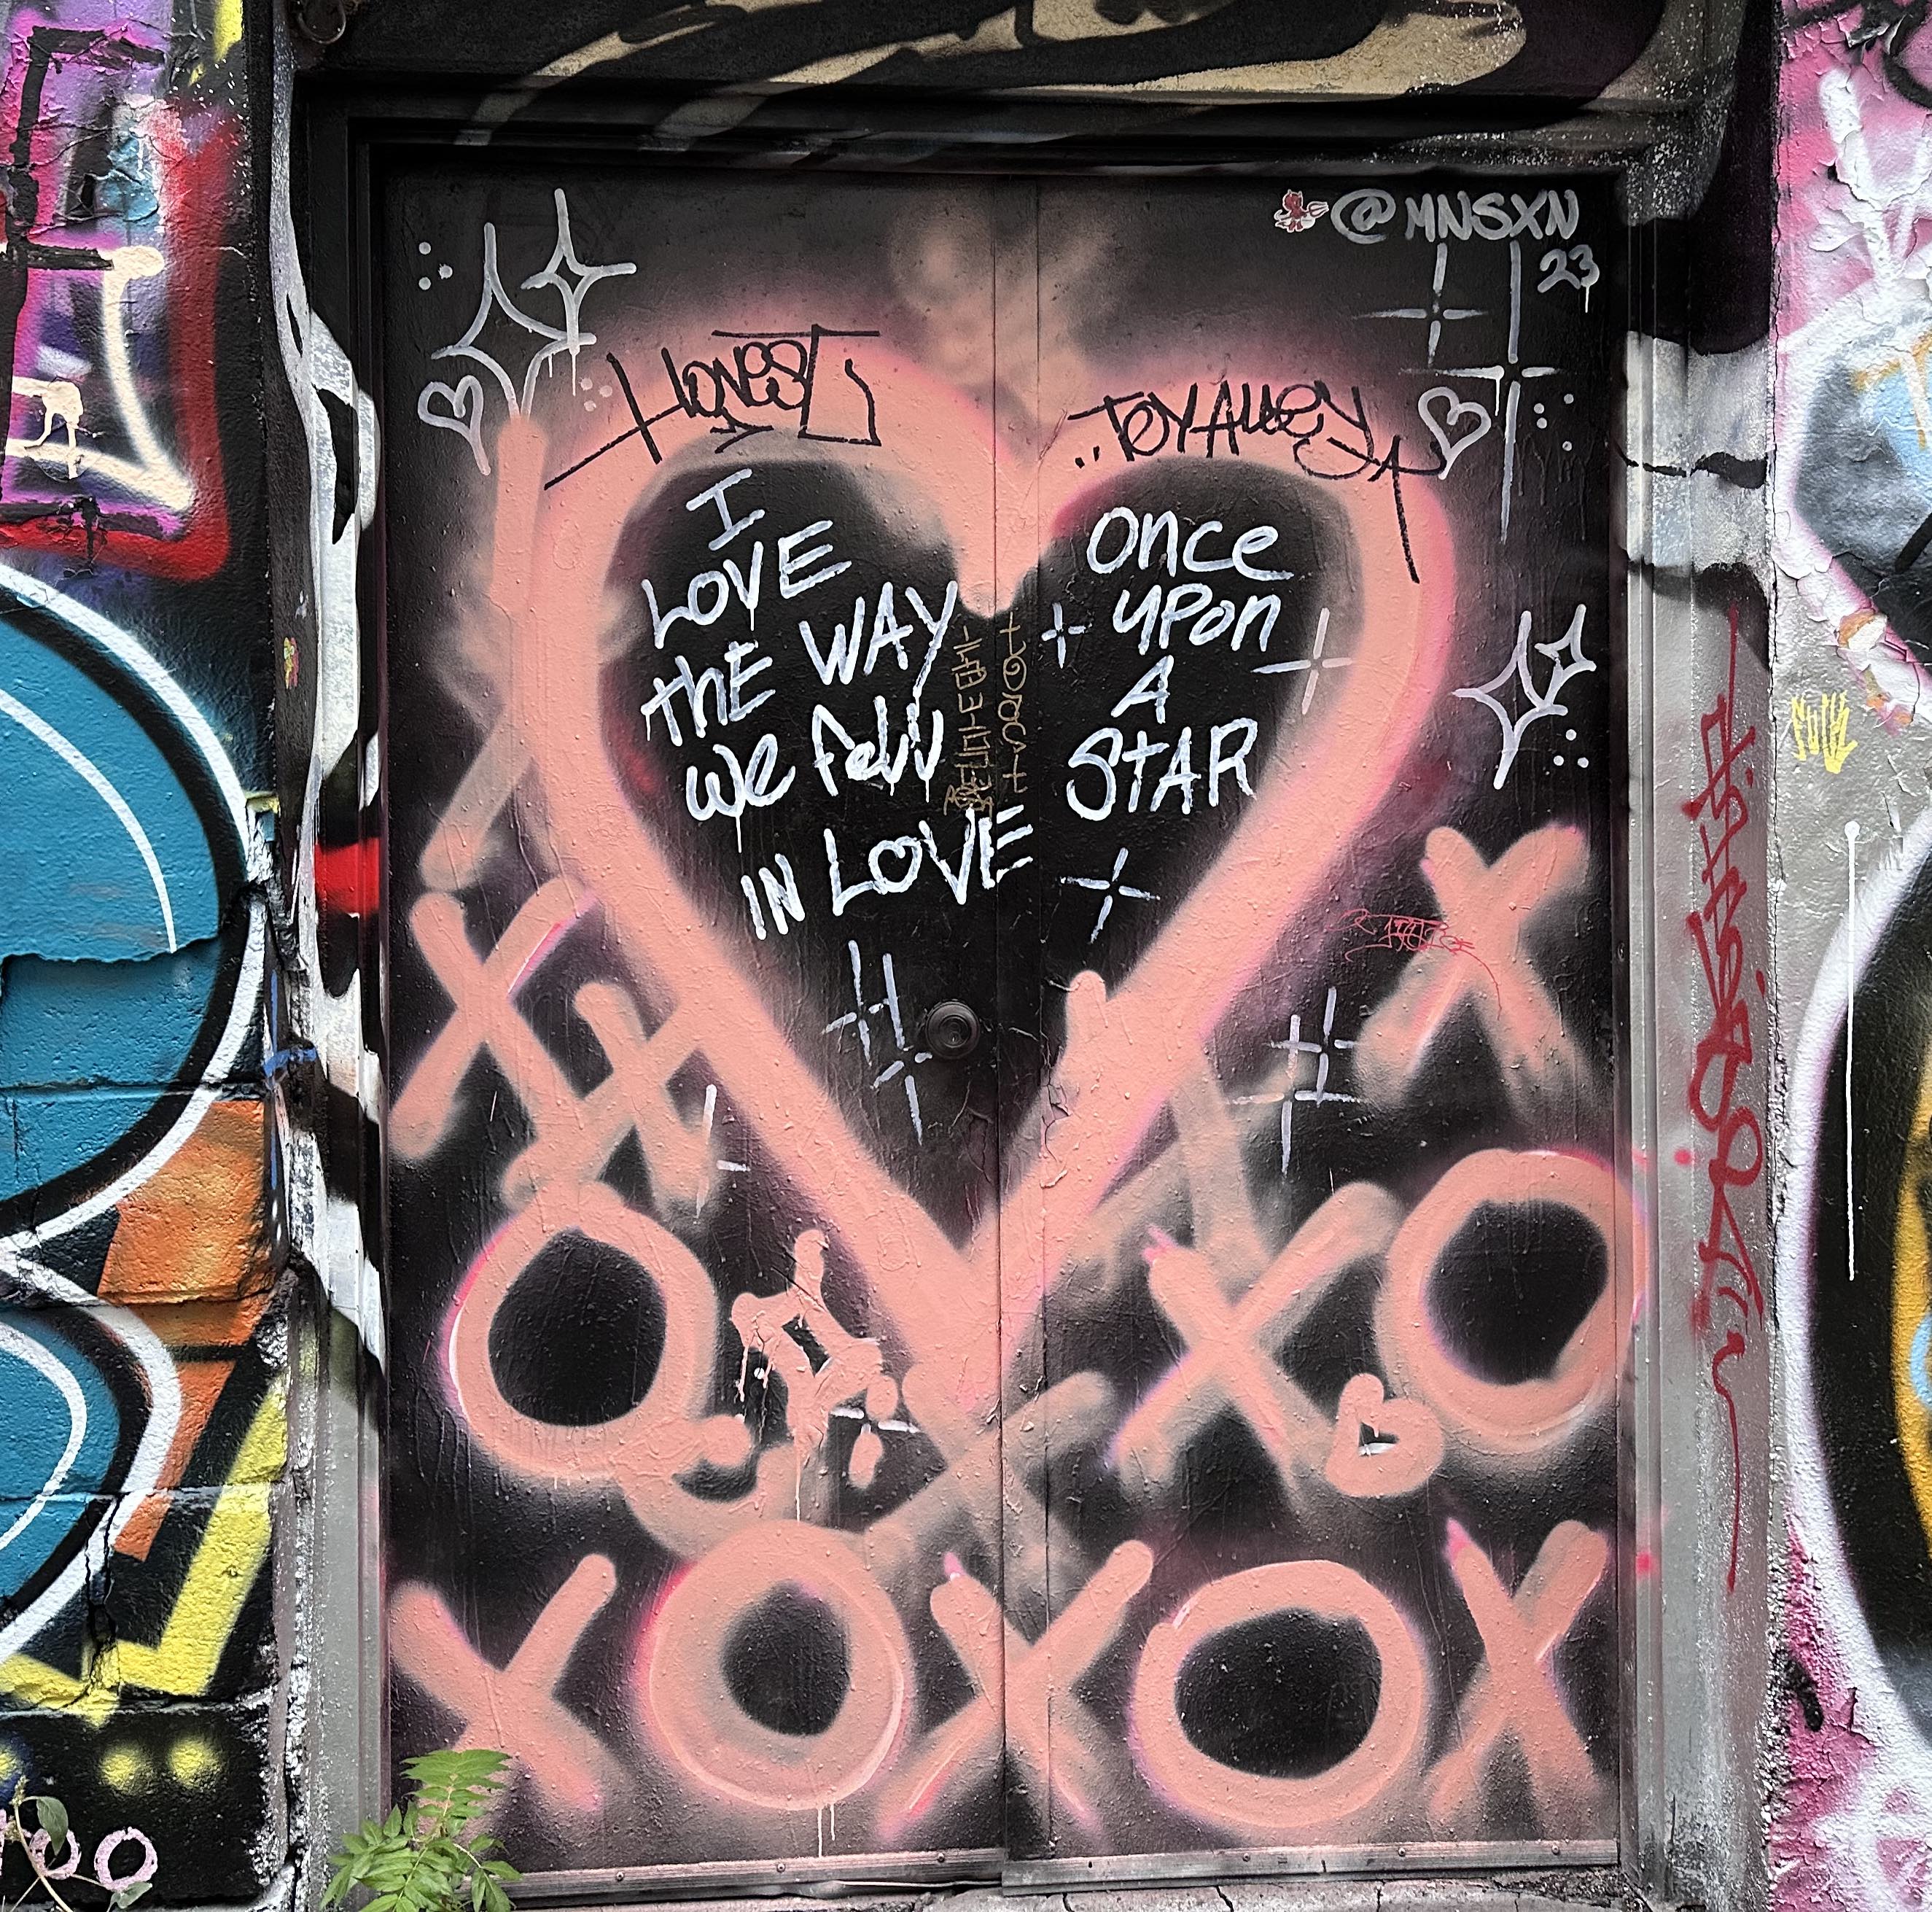 @MNSXN
23
HONEST
TOY ALLEY
I
LOVE
thE WAY
we fell
IN LOVE
Once
upon
A
STAR
X
X
X
O
X
O
X
O
X
O
X